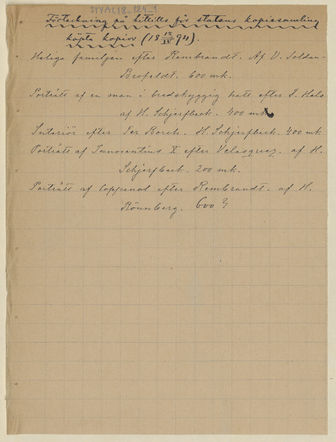 Förteckning på hittills för statens kopiesamling
köpta kopior (18 94).
Heliga familjen efter Rembrandt. Af V. Soldan-
Brofeldt. 600 mk.
Porträtt af en man i bredskyggig hatt efter F. Hals
af H. Schjerfbeck. 400 mk
Interiör efter Ter Borch. H. Schjerfbeck. 400 mk
Porträtt af Innocentius X efter Velasquez. af H.
Schjerfbeck. 200 mk.
Porträtt af Coppenol efter Rembrandt. af H.
Rönnberg. 600 ?